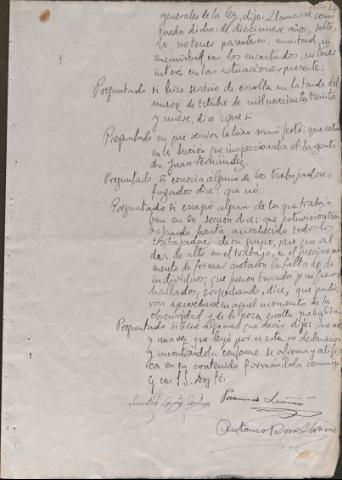 generales de la ley, dijo: Llamarse como
queda dicho: de diecinueve años, solte-
ro no tener parentesco, amistad, ni
enemistad con los encartados, ni tener
interes en las actuaciones presente.
Preguntado si hizo servicio de escolta en la tarde del
nueve de octubre de mil novecientos treinta
y nueve, dice: que si.
Preguntado en que seccion lo hizo manifestó: que estaba
en la seccion que inspeccionaba el Sargento
Dn. Juan Fernández.
Preguntado si conocia alguno de los trabajadores
fugados dice: que no.
Preguntado si escapo alguno de los que trabaja
ban en su seccion dice: que estuvieron tra-
bajando, hasta anochecido todos los
trabajadores de su grupo, pero que al
dar de alto en el trabajo, en el preciso mo
mento de formar notaron la falta de
individuos; que fueron buscados y no fueron
hallados, sospechando, dice, que pudie
ron aprovecharse en aquel momento de la
obscuridad y de la poca escolta que habia.
Preguntado si tiene algo mas que decir dijo: que no
y una vez que leyó por si esta su declaración
y encontrándola conforme se afirma y ratifi
ca en su contenido firmándola conmigo
y con S.S. Doy fe.